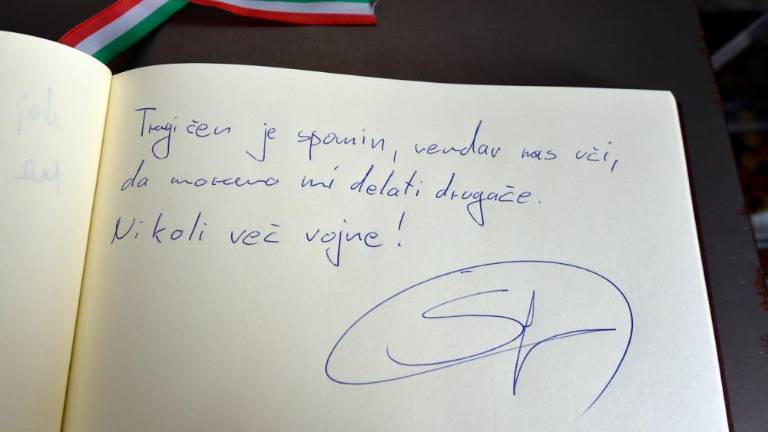 Tragičen je spomin, vendar nas uči,
da moramo mi delati drugače.
Nikoli več vojne!